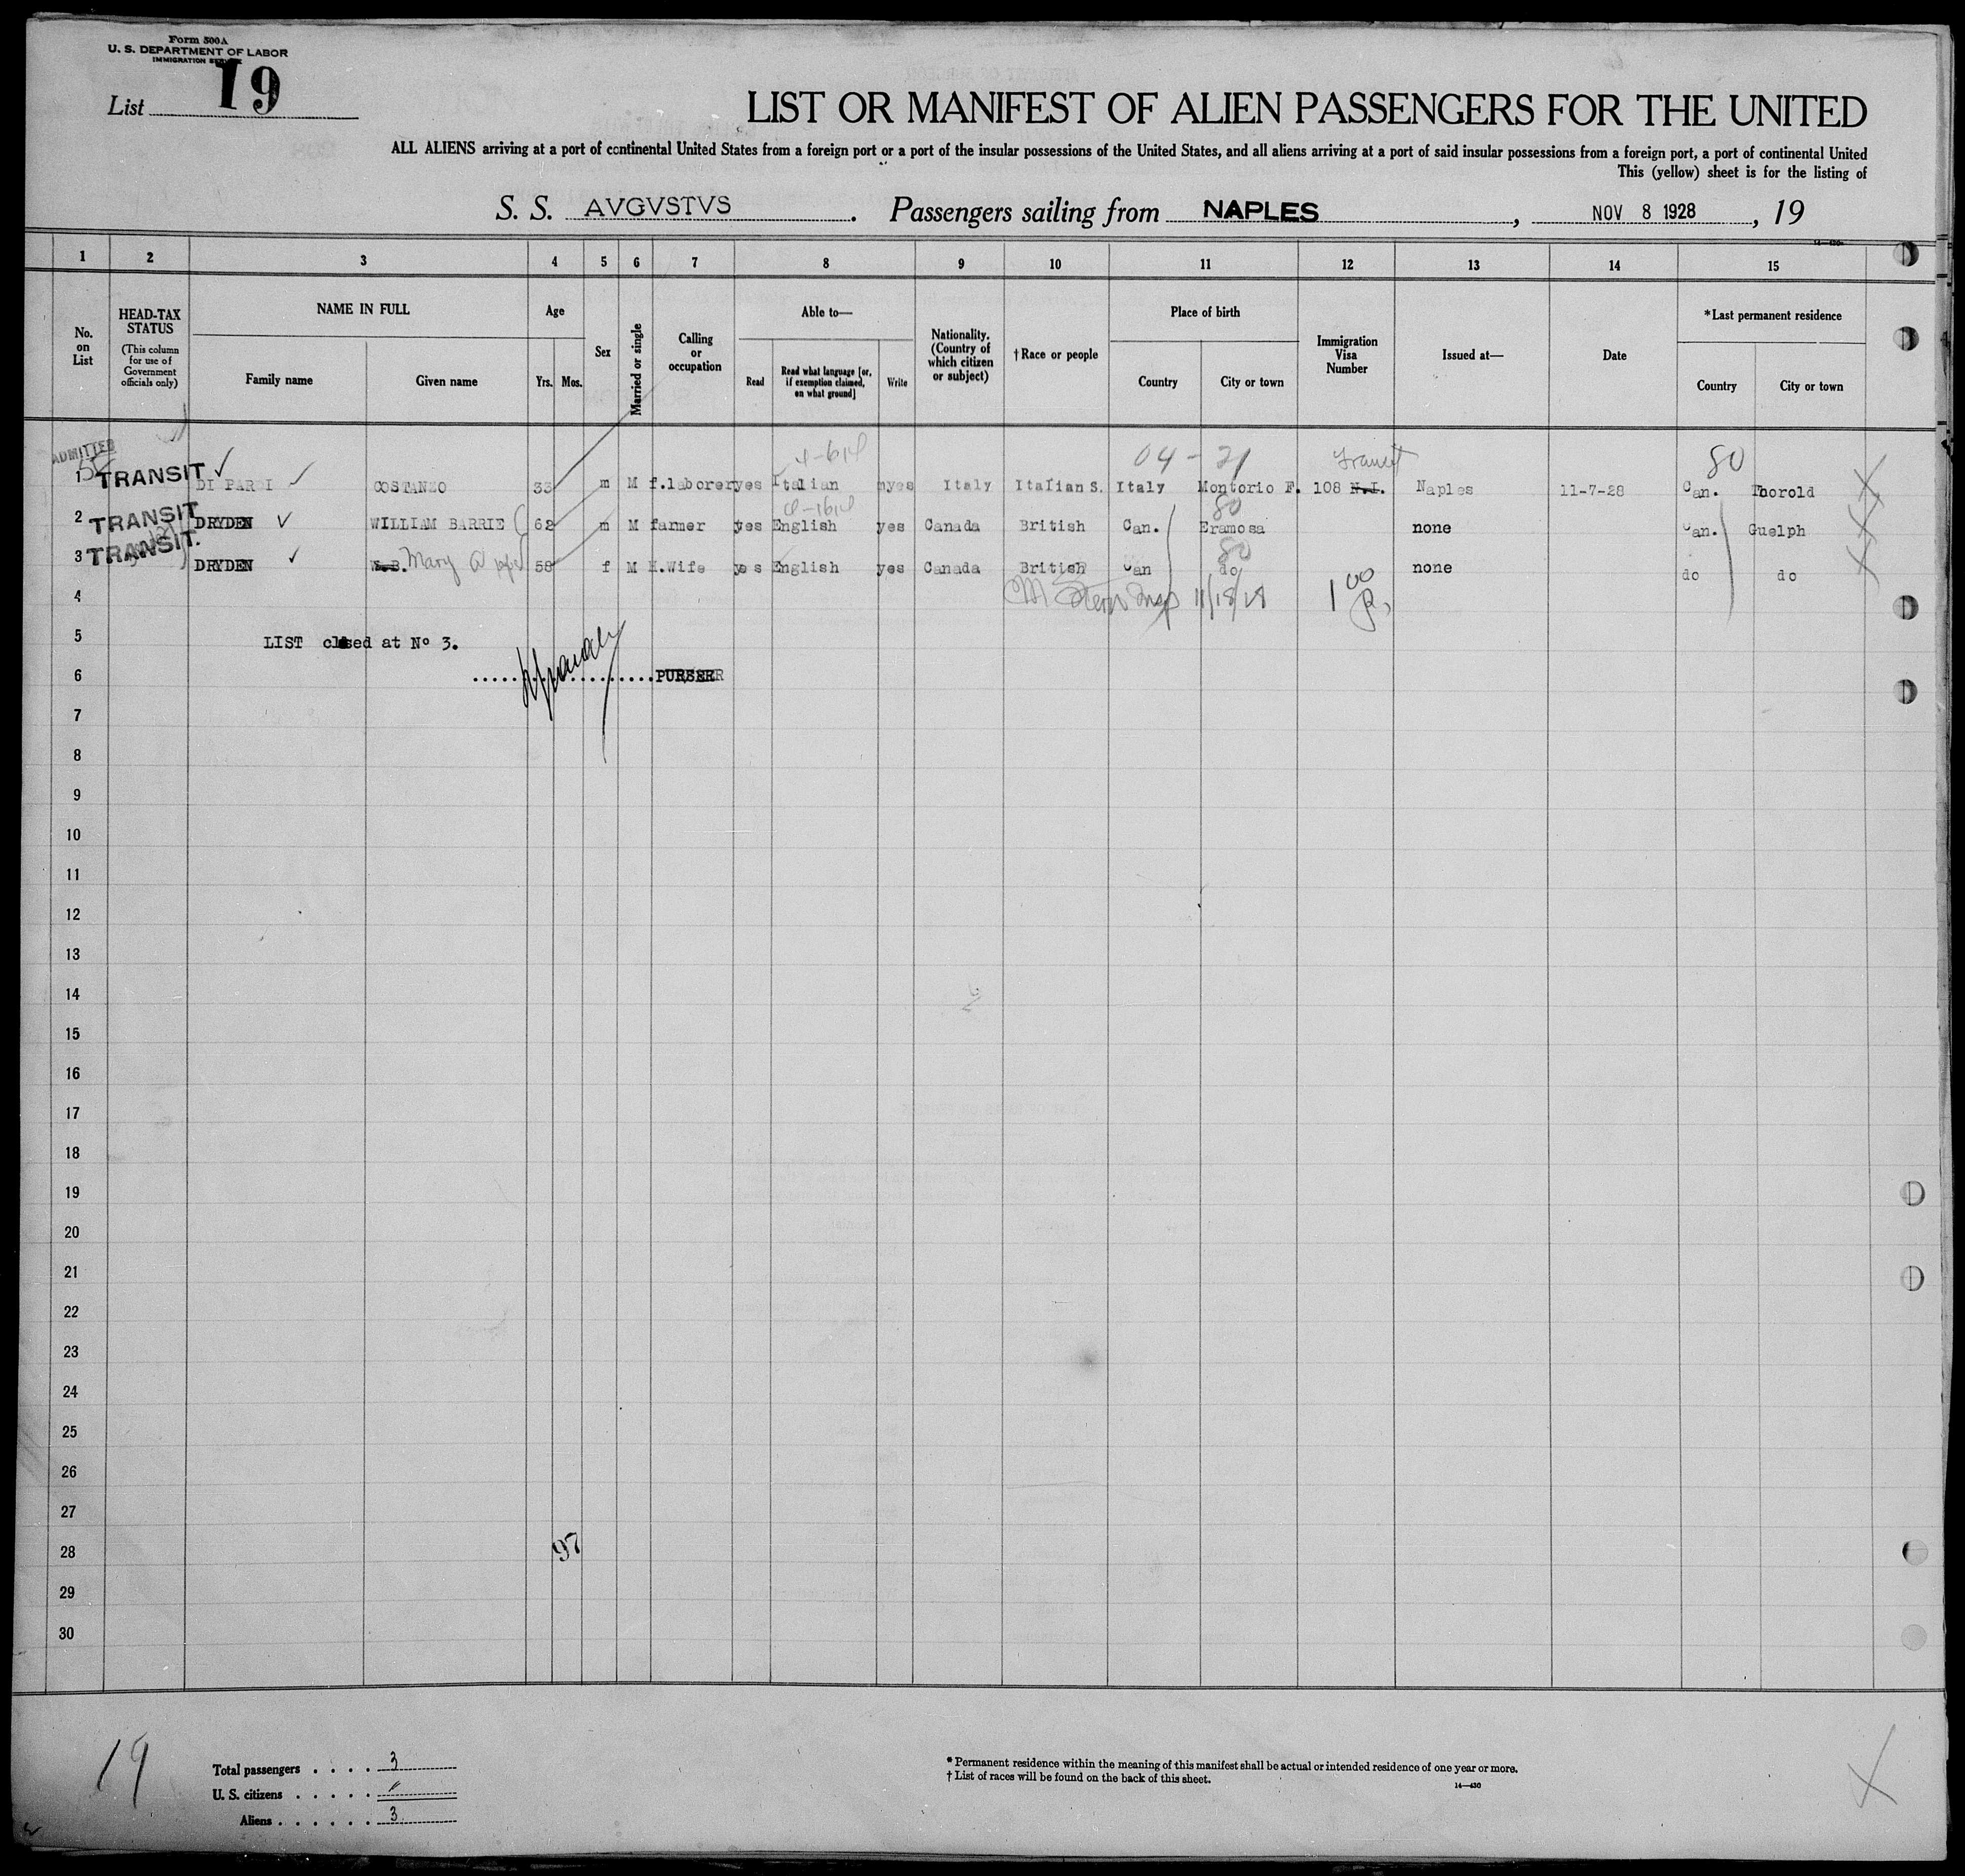 Form 500A
U. S. DEPARTMENT OF LABOR
IMMIGRATION SERVICE
List 19
LIST OR MANIFEST OF ALIEN PASSENGERS FOR THE UNITED
ALL ALIENS arriving at a port of continental United States from a foreign port or a port of the insular possessions of the United States, and all aliens arriving at a port of said insular possessions from a foreign port, a port of continental United
This (yellow) sheet is for the listing of
S. S. AVGVSTVS. Passengers sailing from NAPLES, NOV 8 1928, 19
1 2 3 4 5 6 7 8 9 10 11 12 13 14 15
No. on List
HEAD-TAX STATUS
(This column for use of Government officials only)
NAME IN FULL
Family name
Given name
Age
Yrs. Mos.
Sex
Married or single
Calling or occupation
Able to—
Read
Read what language [or, if exemption claimed, on what ground]
Write
Nationality. (Country of which citizen or subject)
†Race or people
Place of birth
Country
City or town
Immigration Visa Number
Issued at—
Date
*Last permanent residence
Country
City or town
ADMITTED
04 - 21 Transit 80
1 TRANSIT COSTANZO 33 m M f.laborer yes Italian yes Italy Italian S. Italy Montorio F. 108 N.I. Naples 11-7-28 Can. Thorold
80
2 TRANSIT DRYDEN WILLIAM BARRIE 62 m M farmer yes English yes Canada British Can. Eramosa none Can. Guelph
80
3 TRANSIT. DRYDEN W.B. Mary 58 f M H.Wife yes English yes Canada British Can do none do do
4 11/18/28 1 00
5 LIST closed at No 3.
6 PURSER
7
8
9
10
11
12
13
14
15
16
17
18
19
20
21
22
23
24
25
26
27
28 97
29
30
19
Total passengers . . . . 3
U. S. citizens . . . . .
Aliens . . . . . . 3
* Permanent residence within the meaning of this manifest shall be actual or intended residence of one year or more.
† List of races will be found on the back of this sheet.
14—430